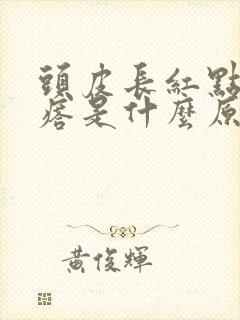 頭皮長紅點
痞是什麼原
黃俊輝